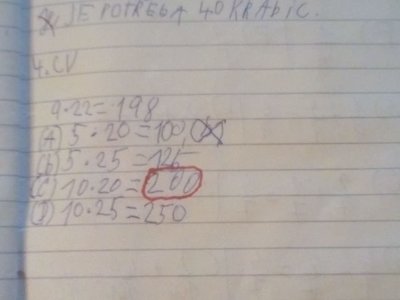 JE POTŘEBA 40 KRABIC.
4. CV
9·22=198
(A) 5·20=100
(b) 5·25=125
(C) 10·20=200
(D) 10·25=250